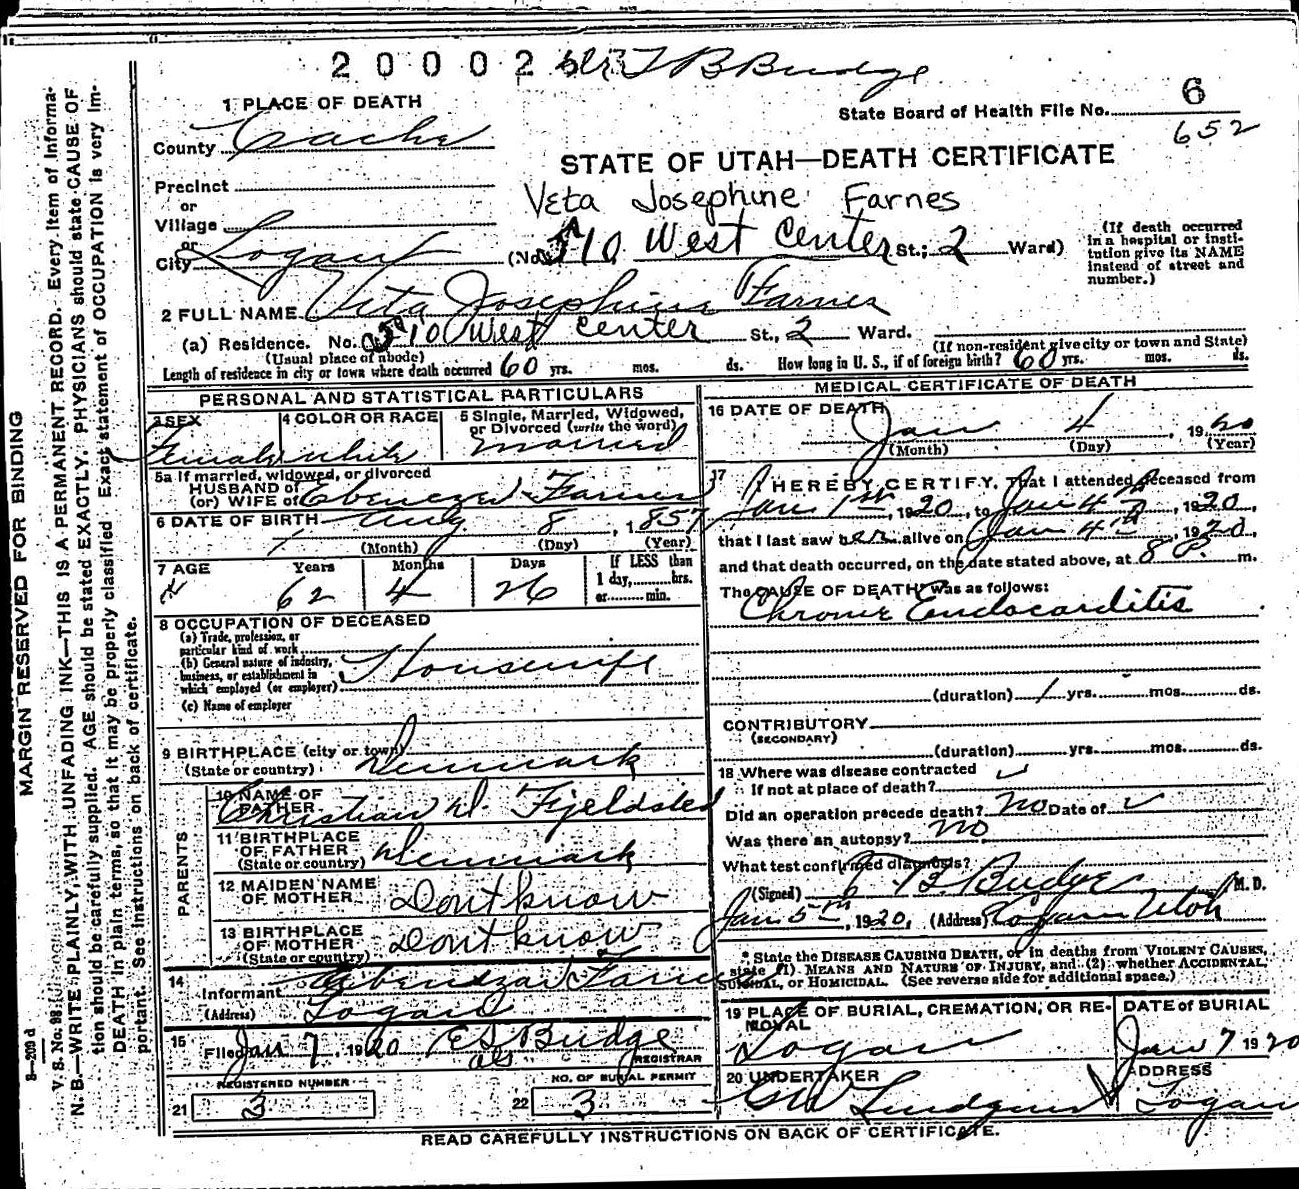 20002 Dr T B Budge
6
State Board of Health File No.
652
1 PLACE OF DEATH
County Cache
STATE OF UTAH—DEATH CERTIFICATE
Precinct
or
Village
or
City Logan
Veta Josephine Farnes
(No. 510 West Center St.; 2 Ward)
(If death occurred in a hospital or insti-
tution give its NAME
instead of street and
number.)
2 FULL NAME Veta Josephine Farnes
(a) Residence. No. 510 West Center St., 2 Ward.
(Usual place of abode)
(If non-resident give city or town and State)
Length of residence in city or town where death occurred 60 yrs. mos. ds. How long in U. S., if of foreign birth? 60 yrs. mos. ds.
PERSONAL AND STATISTICAL PARTICULARS
3 SEX
Female
4 COLOR OR RACE
white
5 Single, Married, Widowed,
or Divorced (write the word)
married
5a If married, widowed, or divorced
HUSBAND of
(or) WIFE of Ebenezer Farnes
6 DATE OF BIRTH Aug 8, 1857
(Month) (Day) (Year)
7 AGE Years Months Days If LESS than
1 day, hrs.
or min.
62 4 26
8 OCCUPATION OF DECEASED
(a) Trade, profession, or
particular kind of work
(b) General nature of industry,
business, or establishment in
which employed (or employer)
Housewife
(c) Name of employer
9 BIRTHPLACE (city or town)
(State or country) Denmark
PARENTS
10 NAME OF
FATHER Christian D. Fjeldsted
11 BIRTHPLACE
OF FATHER
(State or country) Denmark
12 MAIDEN NAME
OF MOTHER Dont know
13 BIRTHPLACE
OF MOTHER
(State or country) Dont know
14
Informant Ebenezar Farnes
(Address) Logan
15 Filed Jan 7, 1920 E S Budge
REGISTRAR
REGISTERED NUMBER
21 3
NO. OF BURIAL PERMIT
22 3
MEDICAL CERTIFICATE OF DEATH
16 DATE OF DEATH
Jan 4, 1920
(Month) (Day) (Year)
17 I HEREBY CERTIFY, That I attended deceased from
Jan 1st, 1920, to Jan 4th, 1920,
that I last saw her alive on Jan 4th, 1920,
and that death occurred, on the date stated above, at 8 P. m.
The CAUSE OF DEATH was as follows:
Chronic Endocarditis
(duration) 1 yrs. mos. ds.
CONTRIBUTORY
(SECONDARY)
(duration) yrs. mos. ds.
18 Where was disease contracted
If not at place of death?
Did an operation precede death? no Date of
Was there an autopsy? no
What test confirmed diagnosis?
(Signed) B. Budge M. D.
Jan 5th, 1920, (Address) Logan Utah
* State the DISEASE CAUSING DEATH, or in deaths from VIOLENT CAUSES,
state (1). MEANS AND NATURE OF INJURY, and (2) whether ACCIDENTAL,
SUICIDAL, or HOMICIDAL. (See reverse side for additional space.)
19 PLACE OF BURIAL, CREMATION, OR RE-
MOVAL
Logan
DATE of BURIAL
Jan 7 1920
20 UNDERTAKER
ADDRESS
Logan
READ CAREFULLY INSTRUCTIONS ON BACK OF CERTIFICATE.
MARGIN RESERVED FOR BINDING
V. S. No. 98
N. B.—WRITE PLAINLY, WITH UNFADING INK—THIS IS A PERMANENT RECORD. Every item of informa-
tion should be carefully supplied. AGE should be stated EXACTLY. PHYSICIANS should state CAUSE OF
DEATH in plain terms, so that it may be properly classified. Exact statement of OCCUPATION is very im-
portant. See instructions on back of certificate.